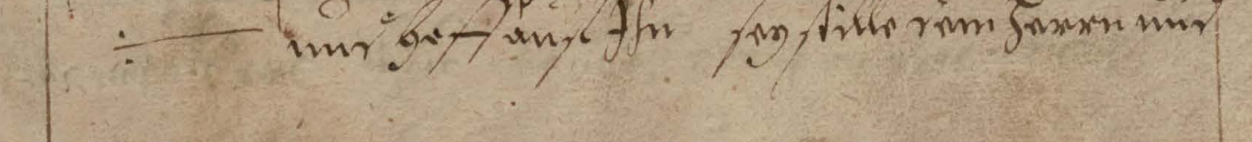 und hoff auf Ihn sey stille dem Herrn und